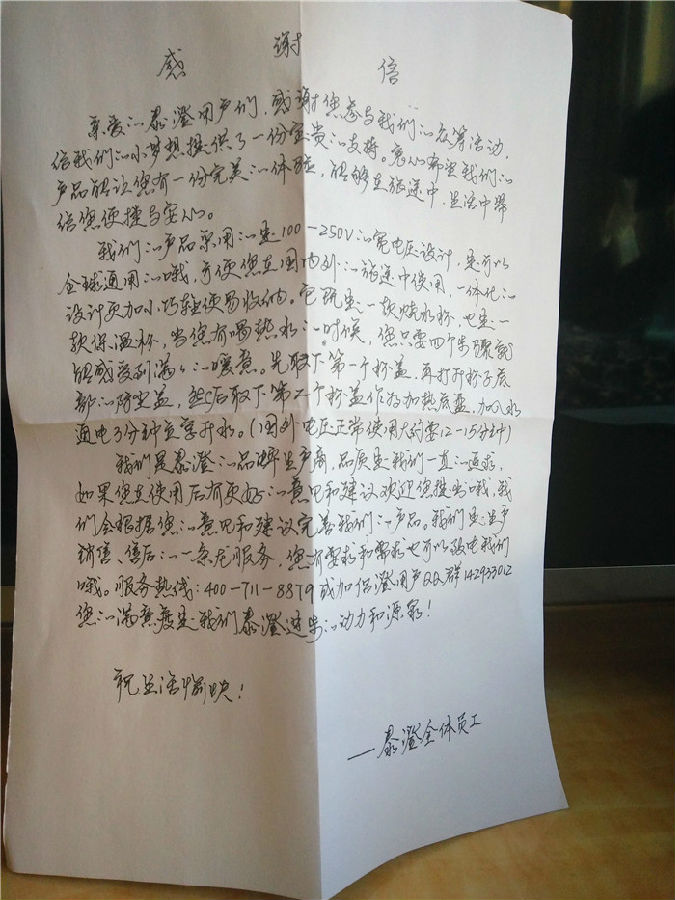 感谢信
亲爱的泰澄用户们，感谢您参与我们的众筹活动，
给我们的小梦想提供了一份宝贵的支持。衷心希望我们的
产品能让您有一份完美的体验，能够在旅途中，生活中带
给您便捷与安心。
我们的产品采用的是100-250V的宽电压设计，是可以
全球通用的哦，方便您在国内外的旅途中使用，一体化的
设计更加小巧轻便易收纳。它既是一款烧水杯，也是一
款保温杯，当您有喝热水的时候，您只要四个步骤就
能感受到满满的暖意。先取下第一个杯盖，再打开杯子底
部的防尘盖，然后取下第二个杯盖作为加热底盘，加入水
通电3分钟宜享开水。(国外电压正常使用大约要12-15分钟)
我们是泰澄的品牌生产商，品质是我们一直的追求，
如果您在使用后有更好的意见和建议欢迎您提出哦，我
们会根据您的意见和建议完善我们的产品。我们是生产
销售、售后的一条龙服务，您有要求和需求也可以致电我们
哦。服务热线：400-711-8879或加侣澄用户QQ群142933012
您的满意度是我们泰澄进步的动力和源泉！
祝生活愉快！
—泰澄全体员工